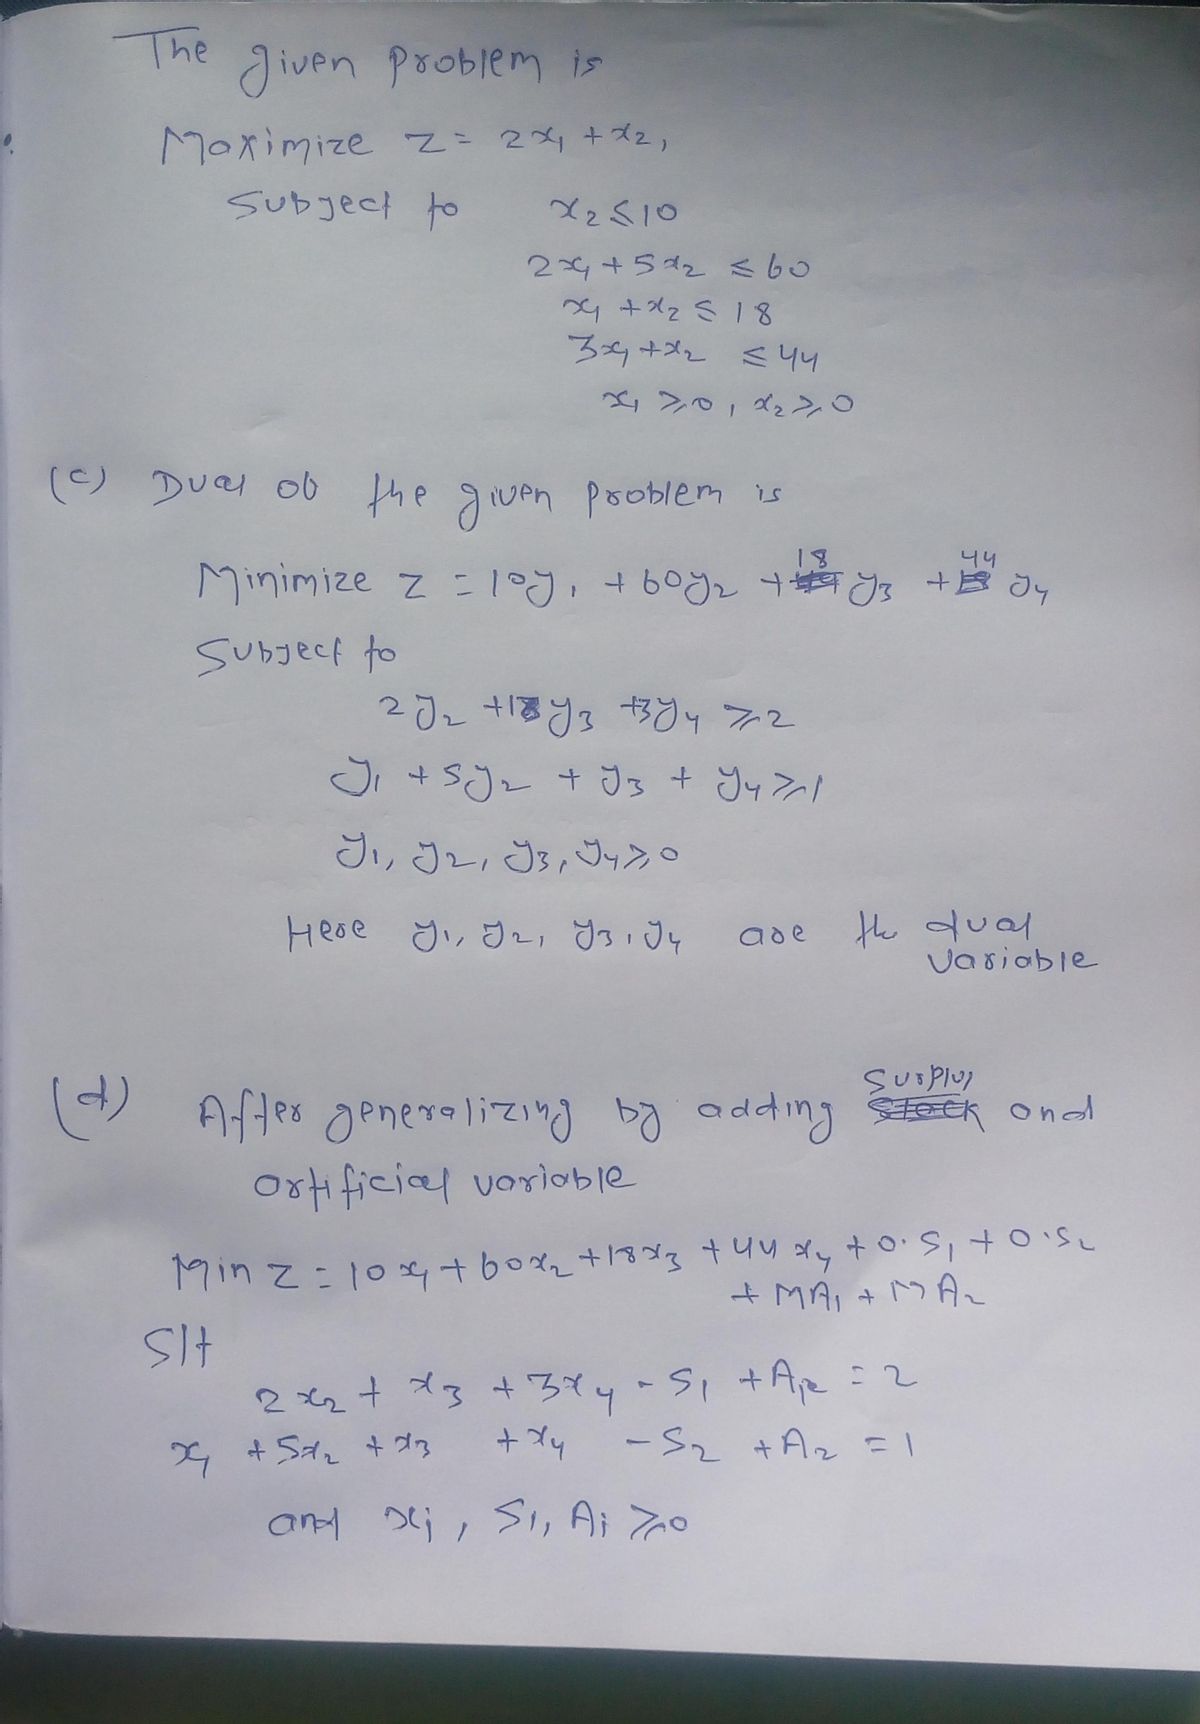 The given problem is
Maximize z = 2x₁ + x₂,
Subject to x₂ ≤ 10
2x₁ + 5x₂ ≤ 60
x₁ + x₂ ≤ 18
3x₁ + x₂ ≤ 44
x₁ ≥ 0, x₂ ≥ 0
(c) Dual of the given problem is
Minimize z = 10y₁ + 60y₂ + 18 y₃ + 44 y₄
Subject to
2y₂ + 18y₃ + 3y₄ ≥ 2
y₁ + 5y₂ + y₃ + y₄ ≥ 1
y₁, y₂, y₃, y₄ ≥ 0
Here y₁, y₂, y₃, y₄ are the dual
variable
(d) After generalizing by adding surplus and
artificial variable
Min z = 10x₁ + 60x₂ + 18x₃ + 44x₄ + 0·S₁ + 0·S₂
+ MA₁ + MA₂
S/t
2x₂ + x₃ + 3x₄ - S₁ + A₁ = 2
x₁ + 5x₂ + x₃ + x₄ - S₂ + A₂ = 1
and xⱼ, Sᵢ, Aᵢ ≥ 0